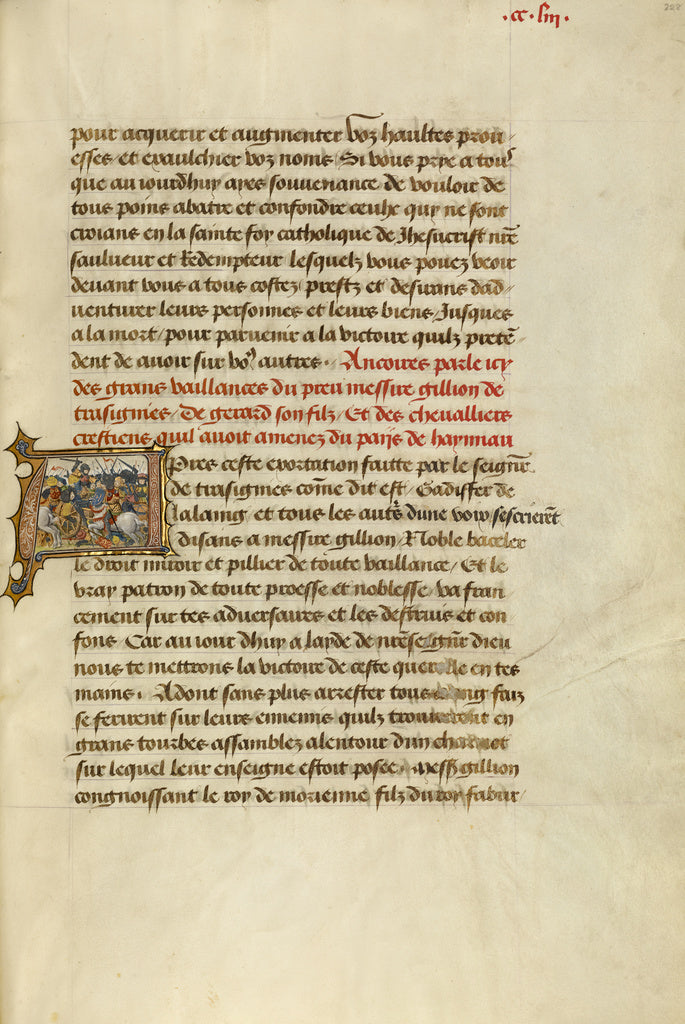 ·cc·liii·
222
pour acquerir et augmenter voz haultes prou
esses et exaulchier voz noms / Si vous prye a tous
que au iourdhuy ayes souvenance de vouloir de
tous poins abatre et confondre ceulx quy ne sont
croians en la sainte foy catholique de Jhesucrist nr̄e
saulueur et Redempteur lesquelz vous pouez veoir
deuant vous a tous costez prestz et desirans dad
venturer leurs personnes et leurs biens / Jusques
a la mort / pour parvenir a la victoire quilz pretē
dent de avoir sur voꝰ autres · Ancoires parle icy
des grans vaillances du preu messire gillion de
trasignies / De gerard son filz / Et des chevalliers
crestiens quil auoit amenez du pays de haynnau
Apres ceste exortation faitte par le seignr̄
de trasignies com̄e dit est / Gadiffer de
lalaing et tous les autr̄s dune voix sescrierēt
disans a messire gillion / Noble baceler
le droit miroir et pillier de toute vaillance / Et le
vray patron de toute proesse et noblesse / va fran
cement sur tes adversaires et les destruis et con
fons Car au iour dhuy a layde de nr̄e seignr̄ dieu
nous te mettrons la victoire de ceste querelle en tes
mains · Adont sans plus arrester tous dung faiz
se ferirent sur leurs ennemis quilz trouverent en
grans tourbes assamblez alentour dun charriot
sur lequel leur enseigne estoit posee · Mess̄ gillion
congnoissant le roy de morienne filz du roy fabur